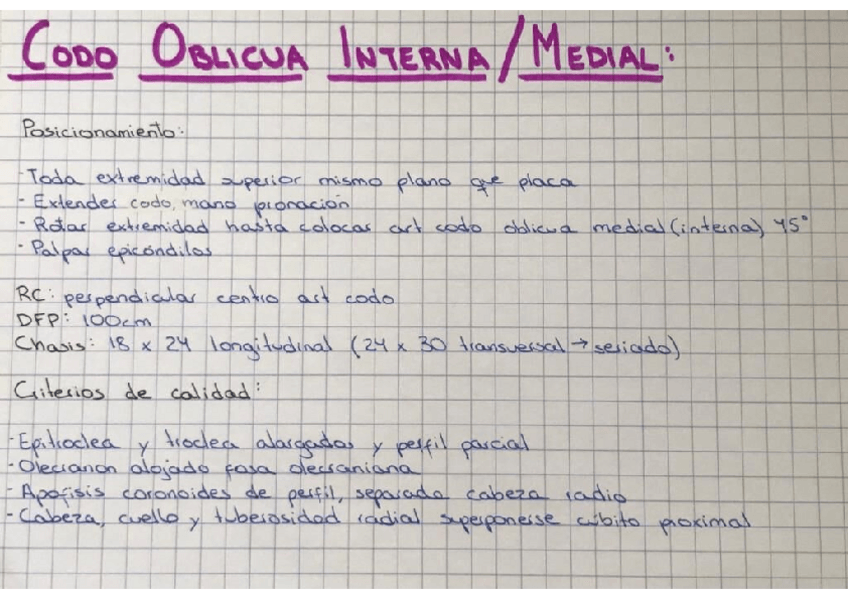 CODO OBLICUA INTERNA/MEDIAL:
Posicionamiento:
- Toda extremidad superior mismo plano que placa
- Extender codo, mano pronación
- Rotar extremidad hasta colocar art codo oblicua medial (interna) 45°
- Palpar epicóndilos
RC: perpendicular centro art codo
DFP: 100cm
Chasis: 18 x 24 longitudinal (24 x 30 transversal → seriado)
Criterios de calidad:
- Epitroclea y troclea alargadas y perfil parcial
- Olecranon alojado fosa olecraniana
- Apófisis coronoides de perfil, separada cabeza radio
- Cabeza, cuello y tuberosidad radial superponerse cúbito proximal